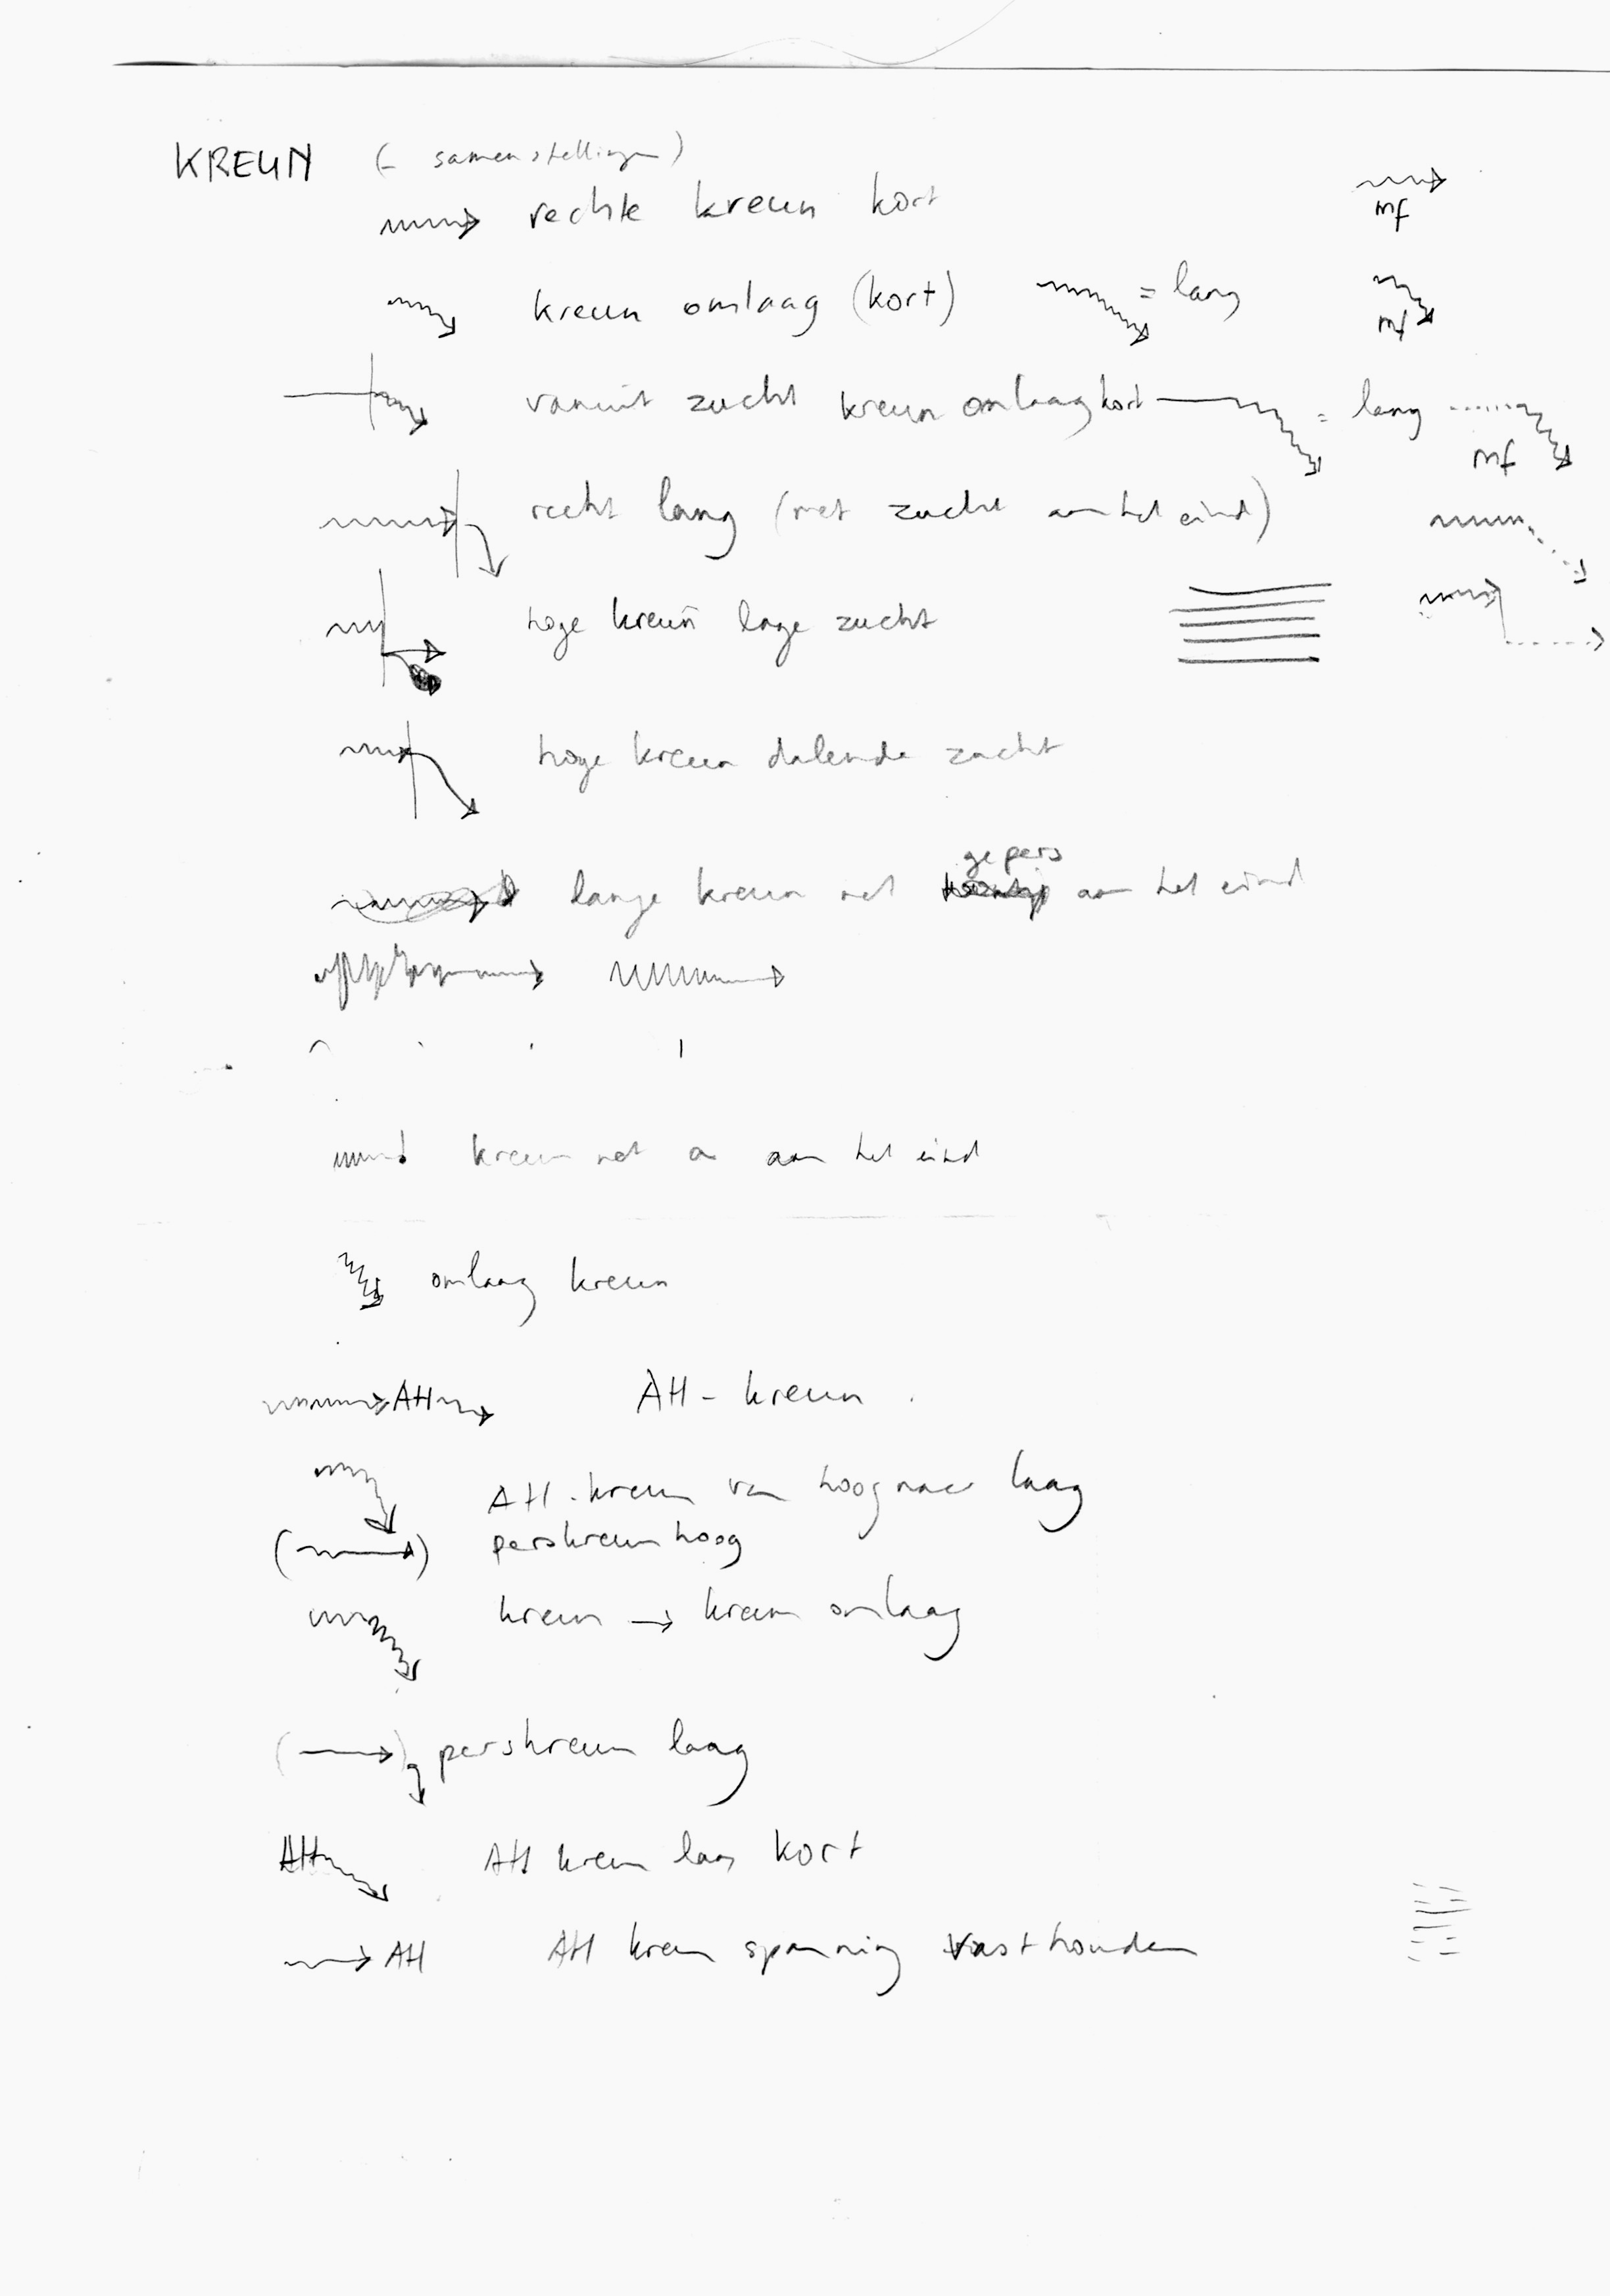 KREUN (- samenstellingen)
rechte kreun kort mf
kreun omlaag (kort) = lang mf
vanuit zucht kreun omlaag kort = lang mf
recht lang (met zucht aan het eind)
hoge kreun lage zucht
hoge kreun dalende zucht
gepers
lange kreun met aan het eind
kreun met a aan het eind
omlaag kreun
AH AH - kreun
AH - kreun van hoog naar laag
perskreun hoog
kreun → kreun omlaag
perskreun laag
AH AH kreun laag kort
AH AH kreun spanning vasthouden